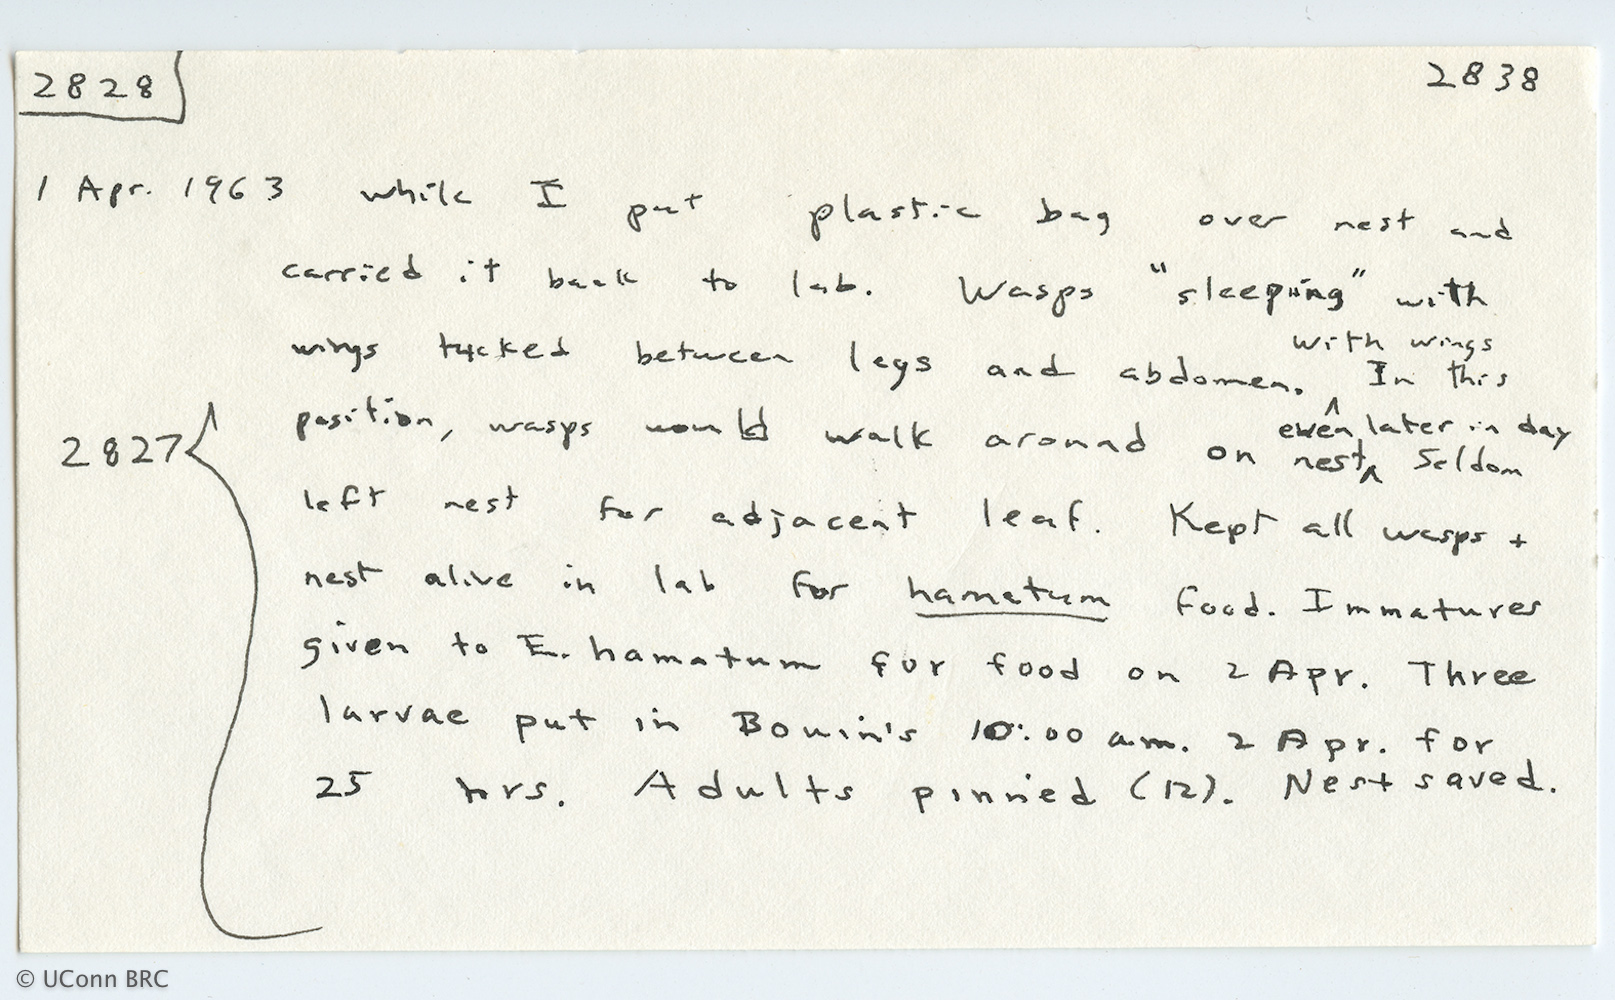 2828
2838
1 Apr. 1963 while I put plastic bag over nest and
carried it back to lab. Wasps "sleeping" with
wings tucked between legs and abdomen. with wings In this
position, wasps would walk around on nest even later in day Seldom
2827
left nest for adjacent leaf. Kept all wasps +
nest alive in lab for hamatum food. Immatures
given to E. hamatum for food on 2 Apr. Three
larvae put in Bouin's 10:00 a.m. 2 Apr. for
25 hrs. Adults pinned (12). Nest saved.
© UConn BRC